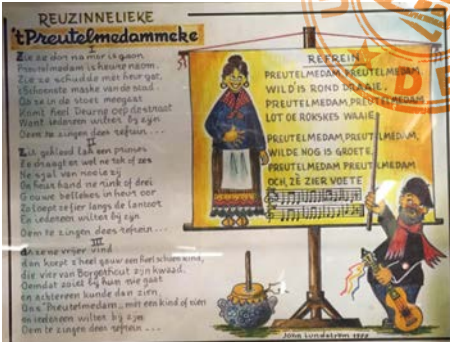 REUZINNELIEKE
't Preutelmedammeke
I
Zie ze dor na mer is goan,
Preutelmedam is heure noom.
Zie ze schudde mét heur gat,
't Schoenste maske van de stad.
As ze in de stoet meegaat
Komt heel Deurne op destraat
Want iedereen wilter bij zijn
Oem te zingen dees refrein...
II
Zis gekleed lak een prinses
En draagt er wel ne rok of zes
Ne sjal van mooie zij
On heur hand ne rink of drei
Gouwe bellekes in heur oor
Zo loept ze fier langs de
En iedereen wilter bij zijn
Oem te zingen dees refrein...
III
As ze ne vrijer vind
dan koept z'heel gauw een heel schoon kind,
die vier van Borgerhout zijn kwaad.
Oemdat zoiet bij hun nie gaat
en achtereen kunde dan zien
Ons "Preutelmedam" met een kind of tien
en iedereen wilter bij zijn
Oem te zingen dees refrein...
REFREIN
PREUTELMEDAM, PREUTELMEDAM,
WILD IS ROND DRAAIE,
PREUTELMEDAM, PREUTELMEDAM
LOT OE ROKSKES WAAIE,
PREUTELMEDAM, PREUTELMEDAM,
WILDE NOG IS GROETE,
PREUTELMEDAM PREUTELMEDAM
OCH, ZÈ ZIER VOETE
John Lundström